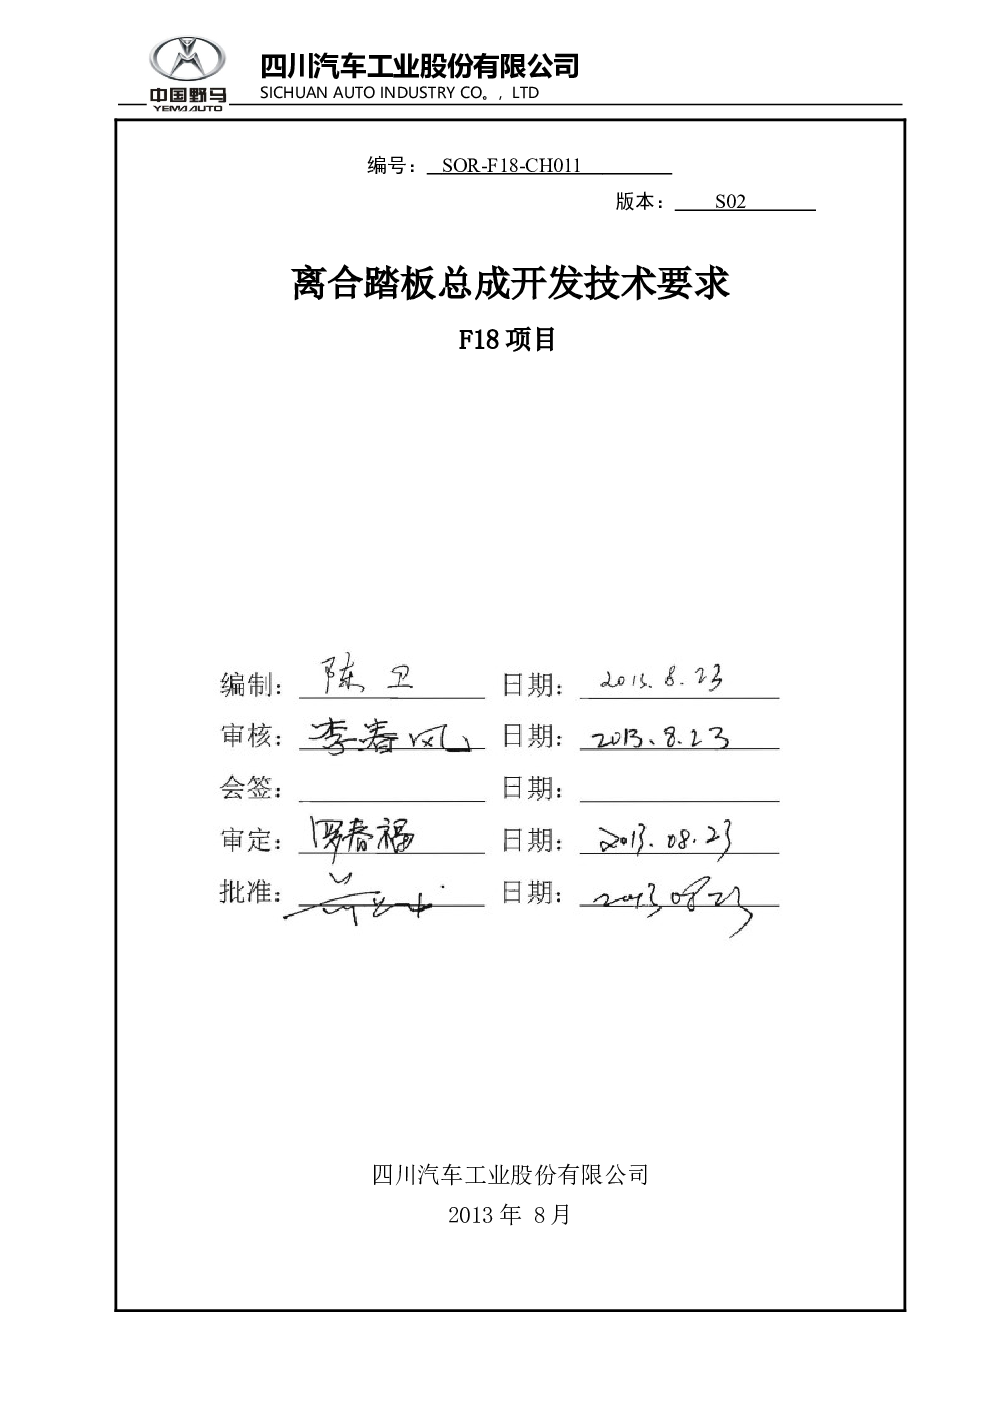 四川汽车工业股份有限公司
SICHUAN AUTO INDUSTRY CO。, LTD
中国野马
YEMA AUTO
编号： SOR-F18-CH011
版本： S02
离合踏板总成开发技术要求
F18 项目
编制： 陈卫 日期： 2013.8.23
审核： 李春风 日期： 2013.8.23
会签： 日期：
审定： 罗春福 日期： 2013.08.23
批准： 日期： 2013.08.23
四川汽车工业股份有限公司
2013 年 8 月